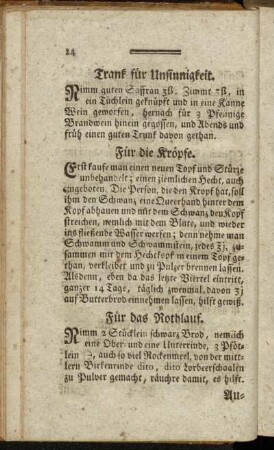 24
Trank für Unsinnigkeit.
Nimm guten Saffran ʒß. Zimmt ʒß, in
ein Tüchlein geknüpft und in eine Kanne
Wein geworfen, hernach für 3 Pfennige
Brandwein hinein gegossen, und Abends und
früh einen guten Trunk davon gethan.
Für die Kröpfe.
Erst kaufe man einen neuen Topf und Stürze
unbehandelt; einen ziemlichen Hecht, auch
ungeboten. Die Person, die den Kropf hat, soll
ihm den Schwanz eine Queerhand hinter dem
Kopf abhauen und mit dem Schwanz den Kopf
streichen, nemlich mit dem Blute, und wieder
ins fließende Wasser werfen; denn nehme man
Schwamm und Schwammstein, jedes ℥j. zu-
sammen mit dem Hechtkopf in einem Topf ge-
than, verkleibet und zu Pulver brennen lassen.
Alsdenn, eben da das letzte Viertel eintritt,
ganzer 14 Tage, täglich zweymal davon ℥j
auf Butterbrod einnehmen lassen, hilft gewiß.
Für das Rothlauf.
Nimm 2 Stücklein schwarz Brod, nemlich
eine Ober- und eine Unterrinde, 3 Pföt-
lein auch so viel Rockenmeel, von der mitt-
lern Birkenrinde dito, dito Lorbeerschaalen
zu Pulver gemacht, räuchre damit, es hilft.
Au-